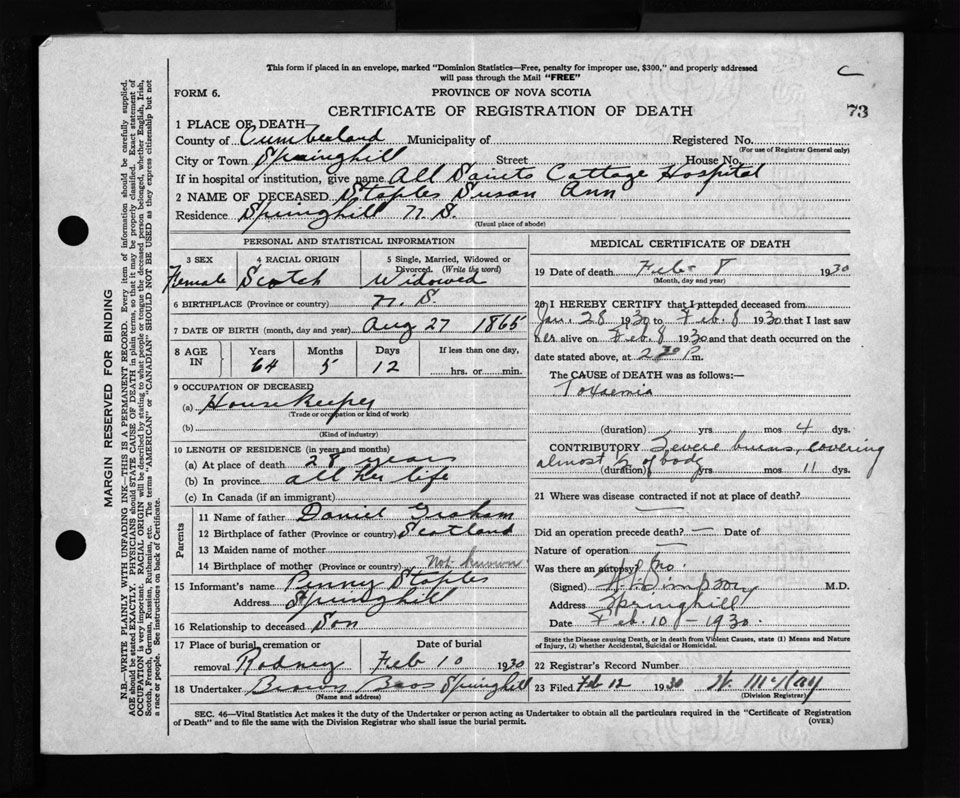 This form if placed in an envelope, marked "Dominion Statistics—Free, penalty for improper use, $300," and properly addressed
will pass through the Mail "FREE"
C
FORM 6.
PROVINCE OF NOVA SCOTIA
CERTIFICATE OF REGISTRATION OF DEATH
73
1 PLACE OF DEATH
County of Cumberland Municipality of Registered No.
(For use of Registrar General only)
City or Town Springhill Street House No.
If in hospital or institution, give name All Saints Cottage Hospital
2 NAME OF DECEASED Staples Susan Ann
Residence Springhill N. S.
(Usual place of abode)
PERSONAL AND STATISTICAL INFORMATION
3 SEX 4 RACIAL ORIGIN 5 Single, Married, Widowed or
Divorced. (Write the word)
Female Scotch Widowed
6 BIRTHPLACE (Province or country) N. S.
7 DATE OF BIRTH (month, day and year) Aug 27 1865
8 AGE IN Years Months Days If less than one day,
64 5 12 hrs. or min.
9 OCCUPATION OF DECEASED
(a) Housekeeper
(Trade or occupation or kind of work)
(b)
(Kind of industry)
10 LENGTH OF RESIDENCE (in years and months)
(a) At place of death 28 years
(b) In province all her life
(c) In Canada (if an immigrant)
Parents
11 Name of father Daniel Graham
12 Birthplace of father (Province or country) Scotland
13 Maiden name of mother
14 Birthplace of mother (Province or country) Not known
15 Informant's name Penny Staples
Address Springhill
16 Relationship to deceased Son
17 Place of burial, cremation or Date of burial
removal Rodney Feb 10 1930
18 Undertaker Brown Bros Springhill
(Name and address)
MEDICAL CERTIFICATE OF DEATH
19 Date of death Feb 8 1930
(Month, day and year)
20 I HEREBY CERTIFY that I attended deceased from
Jan. 28 1930 to Feb. 8 1930 that I last saw
her alive on Feb. 8 1930 and that death occurred on
date stated above, at P.m.
The CAUSE of DEATH was as follows:—
Toxaemia
(duration) yrs mos 4 dys.
CONTRIBUTORY Severe burns, covering
almost of body
(duration) yrs mos 11 dys.
21 Where was disease contracted if not at place of death?
—
Did an operation precede death? — Date of
Nature of operation —
Was there an autopsy? No.
(Signed) M.D.
Address Springhill
Date Feb. 10 - 1930.
State the Disease causing Death, or in death from Violent Causes, state (1) Means and Nature
of Injury, (2) whether Accidental, Suicidal or Homicidal.
22 Registrar's Record Number
23 Filed Feb 12 1930 W McKay
(Division Registrar)
SEC. 46—Vital Statistics Act makes it the duty of the Undertaker or person acting as Undertaker to obtain all the particulars required in the "Certificate of Registration
of Death" and to file the same with the Division Registrar who shall issue the burial permit. (OVER)
MARGIN RESERVED FOR BINDING
N.B.—WRITE PLAINLY WITH UNFADING INK—THIS IS A PERMANENT RECORD. Every item of information should be carefully supplied.
AGE should be stated EXACTLY. PHYSICIANS should STATE CAUSE OF DEATH in plain terms, so that it may be properly classified. Exact statement of
OCCUPATION is very important. RACIAL ORIGIN will be described by stating to what people or tongue the deceased person belonged, whether English, Irish,
Scotch, French, German, Russian, Ruthenian, etc. The terms "AMERICAN" or "CANADIAN" SHOULD NOT BE USED as they express citizenship but not
a race or people. See instructions on back of Certificate.